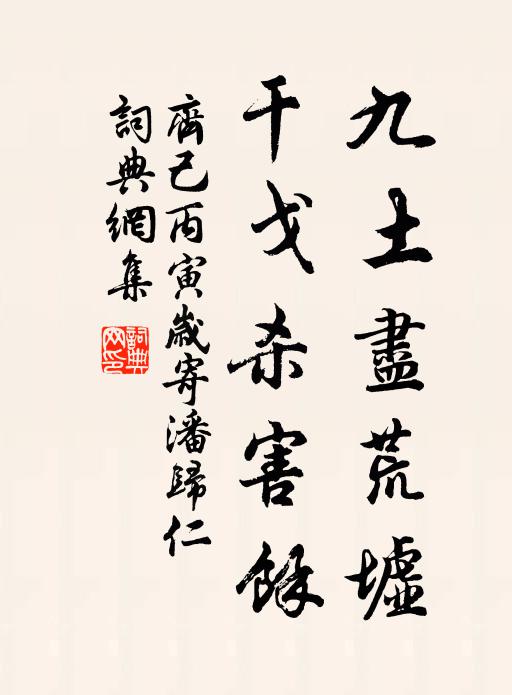 九土盡荒墟
干戈杀害餘
齊己丙寅歲寄潘歸仁
詞典網集
詞典
网印